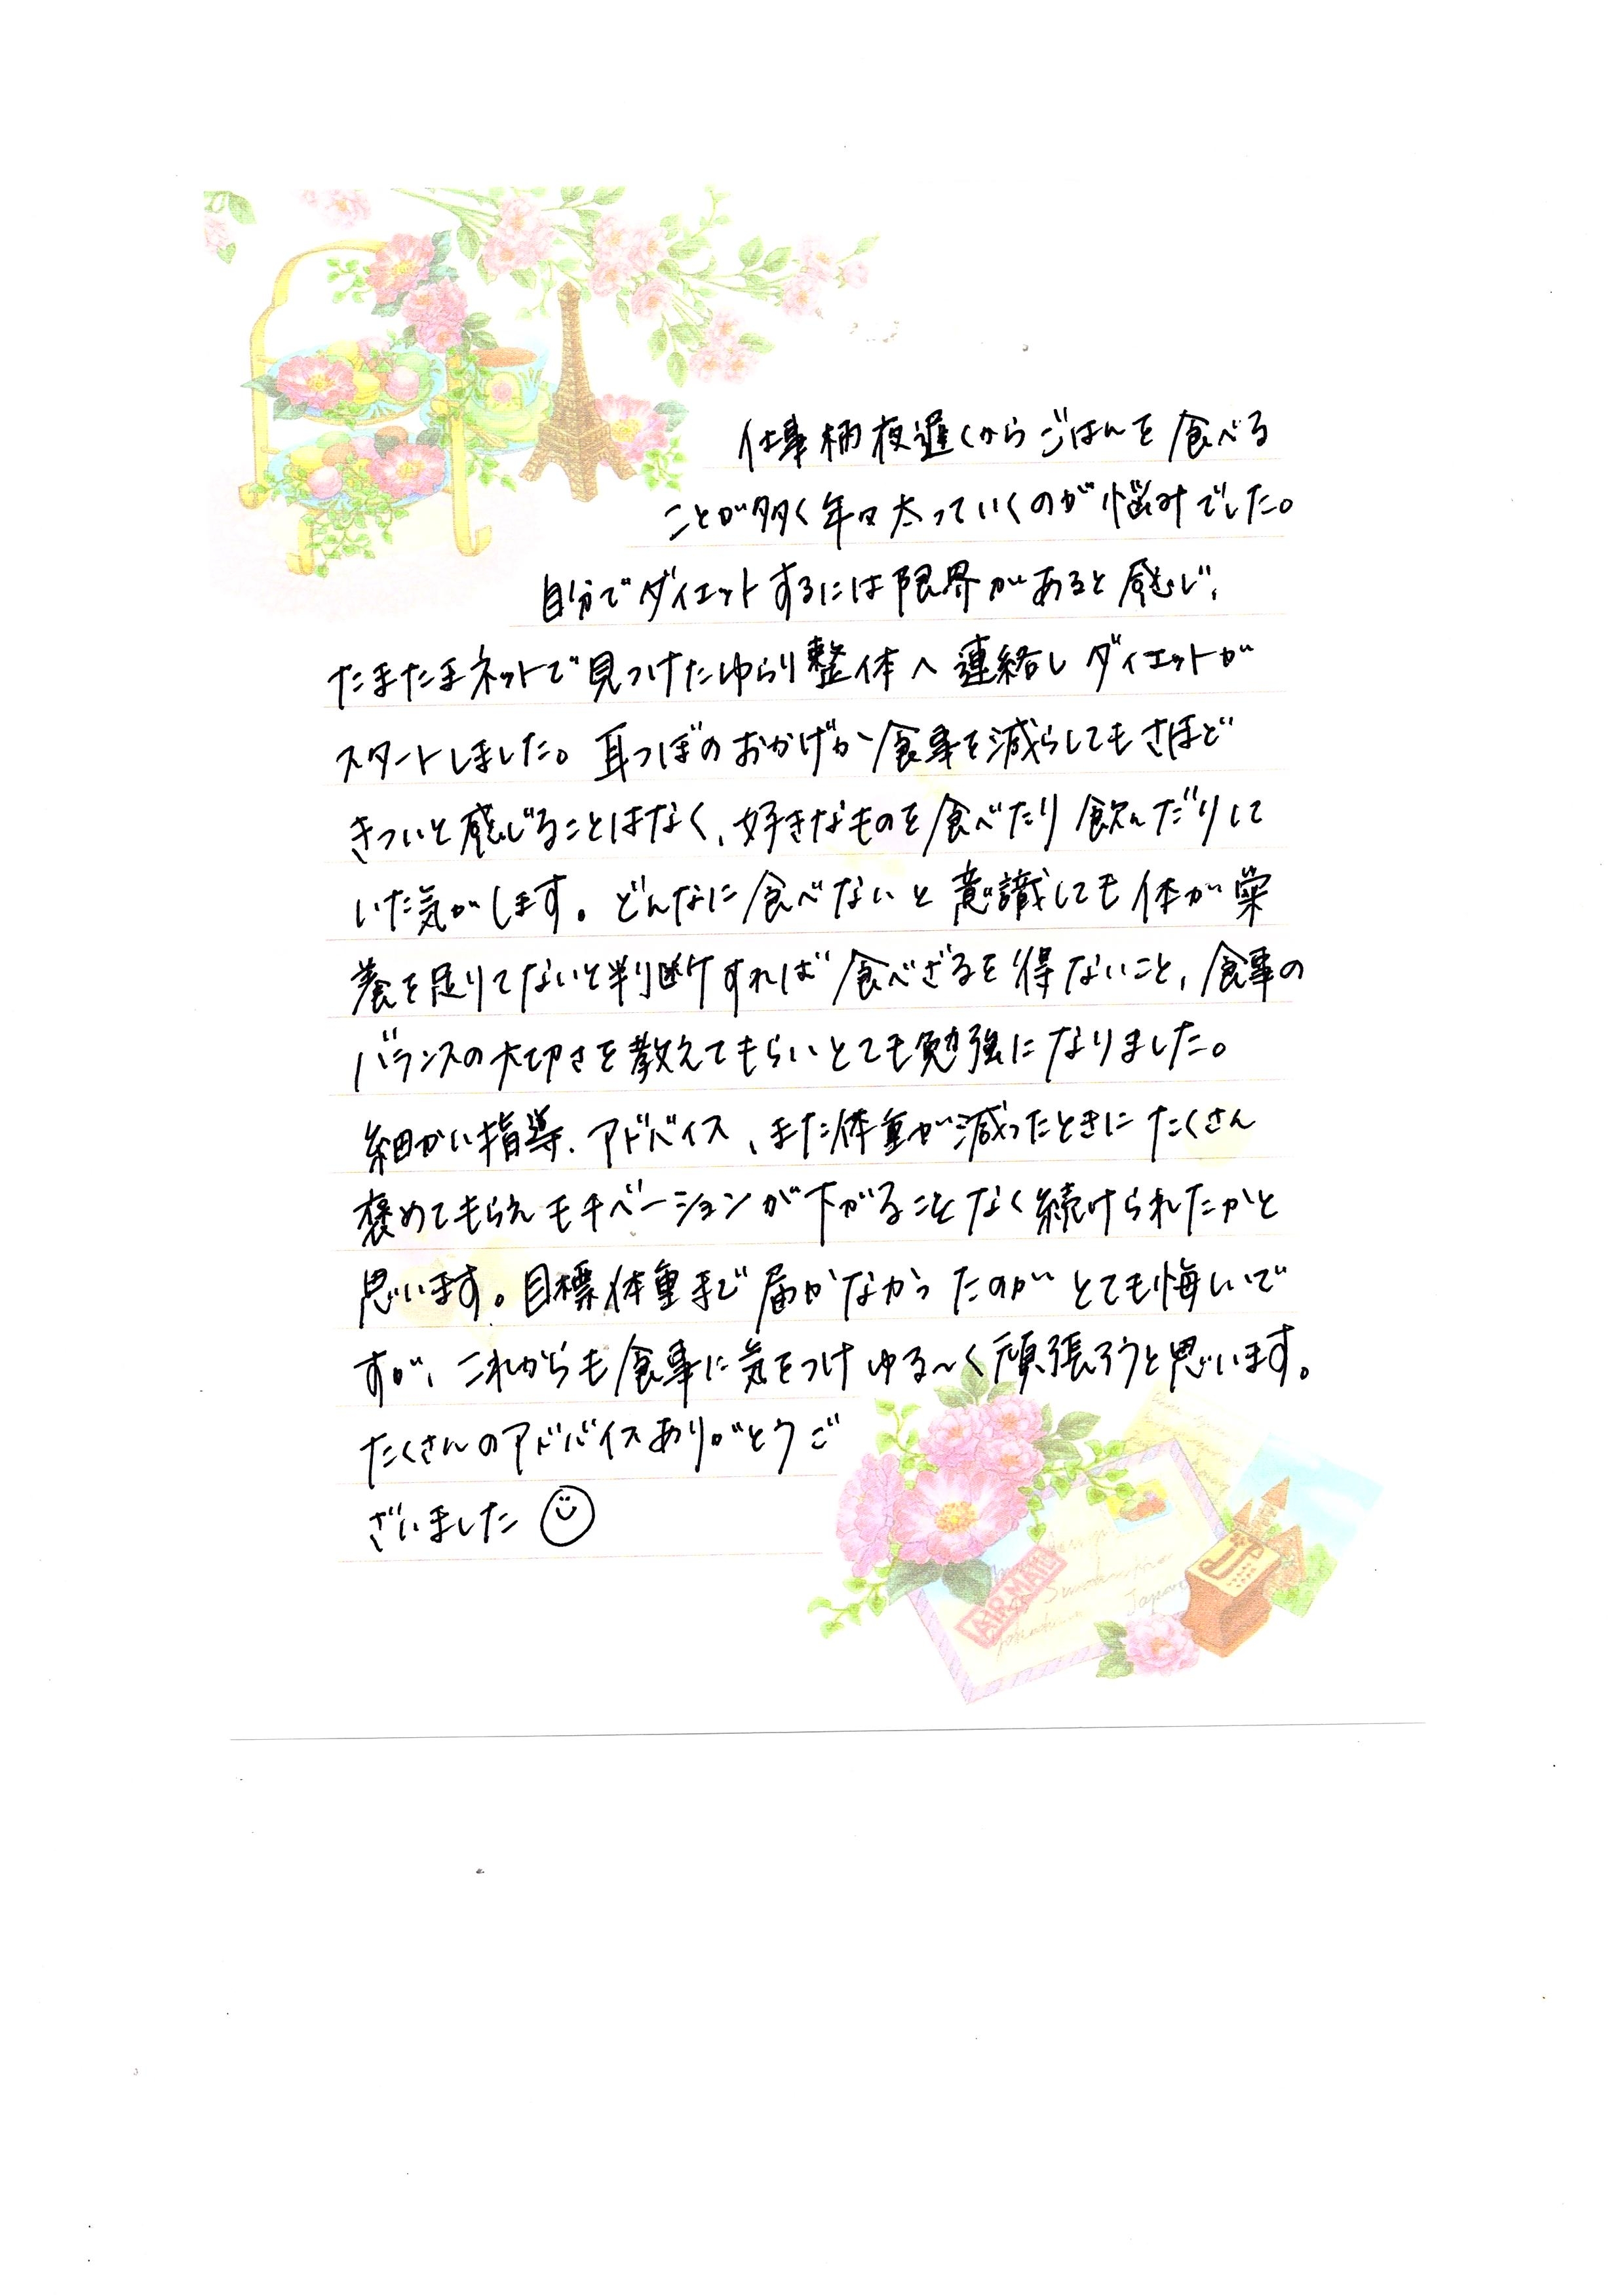 仕事柄夜遅くからごはんを食べる
ことが多く年々太っていくのが悩みでした。
自分でダイエットするには限界があると感じ、
たまたまネットで見つけたゆらり整体へ連絡しダイエットが
スタートしました。耳つぼのおかげか食事を減らしてもさほど
きついと感じることはなく、好きなものを食べたり飲んだりして
いた気がします。どんなに食べないと意識しても体が栄
養を足りてないと判断すれば食べざるを得ないこと、食事の
バランスの大切さを教えてもらいとても勉強になりました。
細かい指導、アドバイス、また体重が減ったときにたくさん
褒めてもらえモチベーションが下がることなく続けられたかと
思います。目標体重まで届かなかったのがとても悔いで
すが、これからも食事に気をつけゆる〜く頑張ろうと思います。
たくさんのアドバイスありがとうご
ざいました
AIR MAIL
Japan